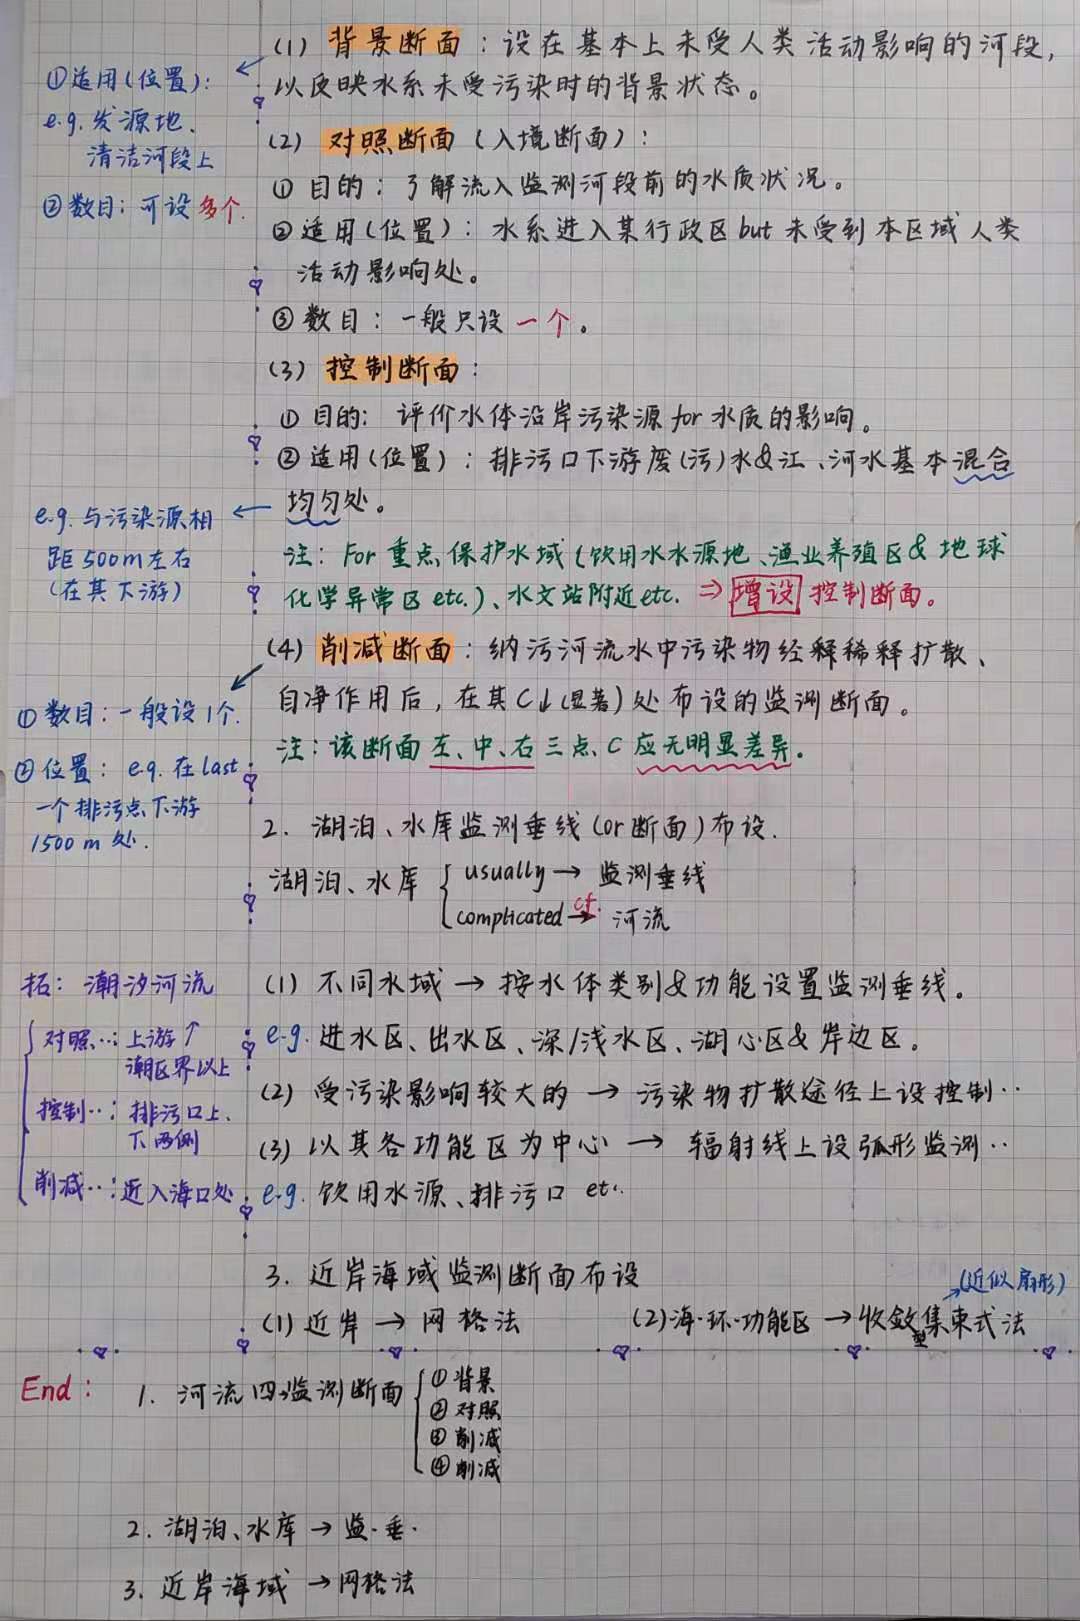 (1) 背景断面：设在基本上未受人类活动影响的河段,
以反映水系未受污染时的背景状态。
①适用(位置)：
e.g. 发源地、
清洁河段上
②数目：可设多个.
(2) 对照断面(入境断面)：
① 目的：了解流入监测河段前的水质状况。
② 适用(位置)：水系进入某行政区but未受到本区域人类
活动影响处。
③ 数目：一般只设一个。
(3) 控制断面：
① 目的: 评价水体沿岸污染源for水质的影响。
② 适用(位置)：排污口下游废(污)水&江、河水基本混合
均匀处。
e.g. 与污染源相
距500m左右
(在其下游)
注：For重点保护水域(饮用水水源地、渔业养殖区&地球
化学异常区etc.)、水文站附近etc. ⇒ 增设控制断面。
(4) 削减断面：纳污河流水中污染物经释稀释扩散、
自净作用后，在其C↓(显著)处布设的监测断面。
注：该断面左、中、右三点、C应无明显差异.
① 数目：一般设1个.
② 位置：e.g. 在last
一个排污点下游
1500m处.
2. 湖泊、水库监测垂线(or断面)布设.
湖泊、水库 { usually → 监测垂线
complicated cf. → 河流
(1) 不同水域 → 按水体类别&功能设置监测垂线。
e.g. 进水区、出水区、深/浅水区、湖心区&岸边区。
(2) 受污染影响较大的 → 污染物扩散途径上设控制··
(3) 以其各功能区为中心 → 辐射线上设弧形监测··
e.g. 饮用水源、排污口 etc.
拓：潮汐河流
对照··：上游↑
潮区界以上
控制··：排污口上、
下两侧
削减··：近入海口处
3. 近岸海域监测断面布设
(1) 近岸 → 网格法
(2) 海·环·功能区 → 收敛型集束式法
(近似扇形)
End：
1. 河流四监测断面 { ① 背景
② 对照
③ 削减
④ 削减
2. 湖泊、水库 → 监·垂·
3. 近岸海域 → 网格法